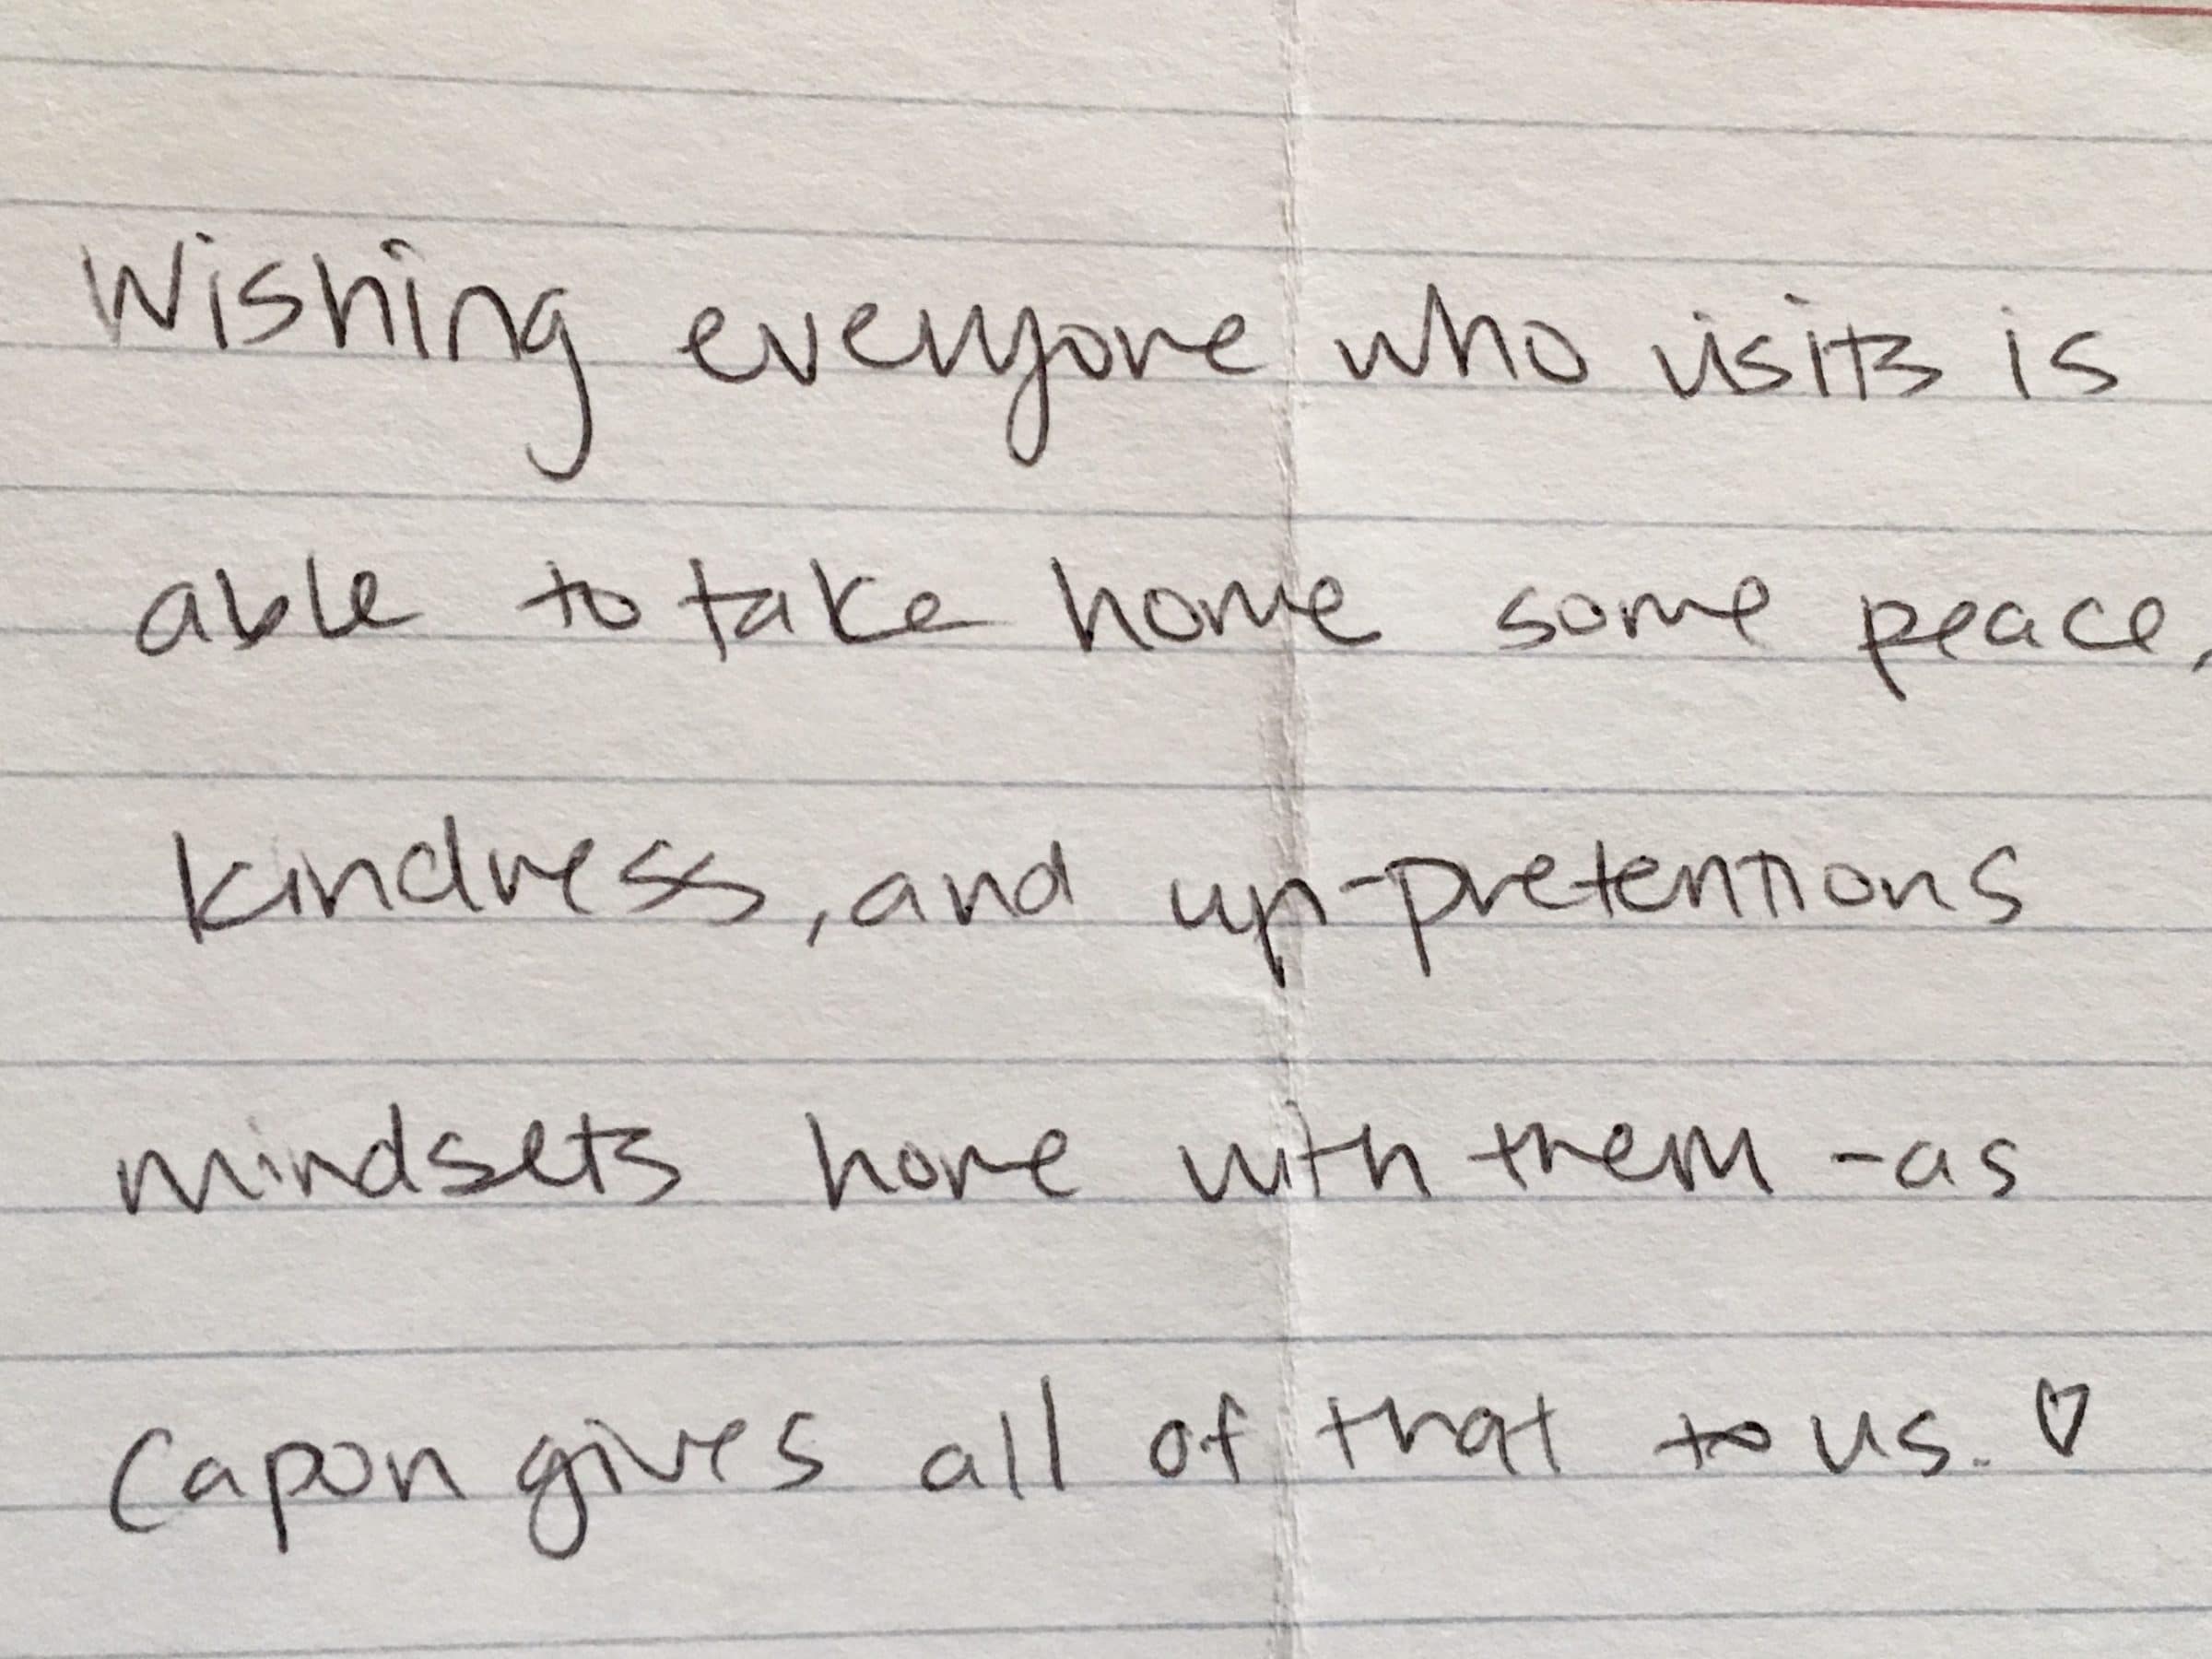 Wishing everyone who visits is
able to take home some peace,
kindness, and un-pretentions
mindsets home with them - as
Capon gives all of that to us. ♡